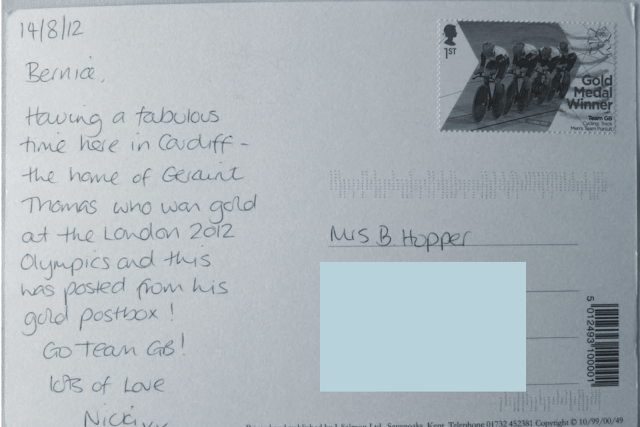 14/8/12
Bernie,
Having a fabulous
time here in Cardiff -
the home of Geraint
Thomas who won gold
at the London 2012
Olympics and this
was posted from his
gold postbox!
Go Team GB!
lots of Love
1ST
Gold
Medal
Winner
Team GB
Cycling: Track
Men's Team Pursuit
Mrs B. Hopper
5 012493 100001
published by J. Salmon Ltd., Sevenoaks, Kent. Telephone 01732 452381 Copyright © 10/99/00/49